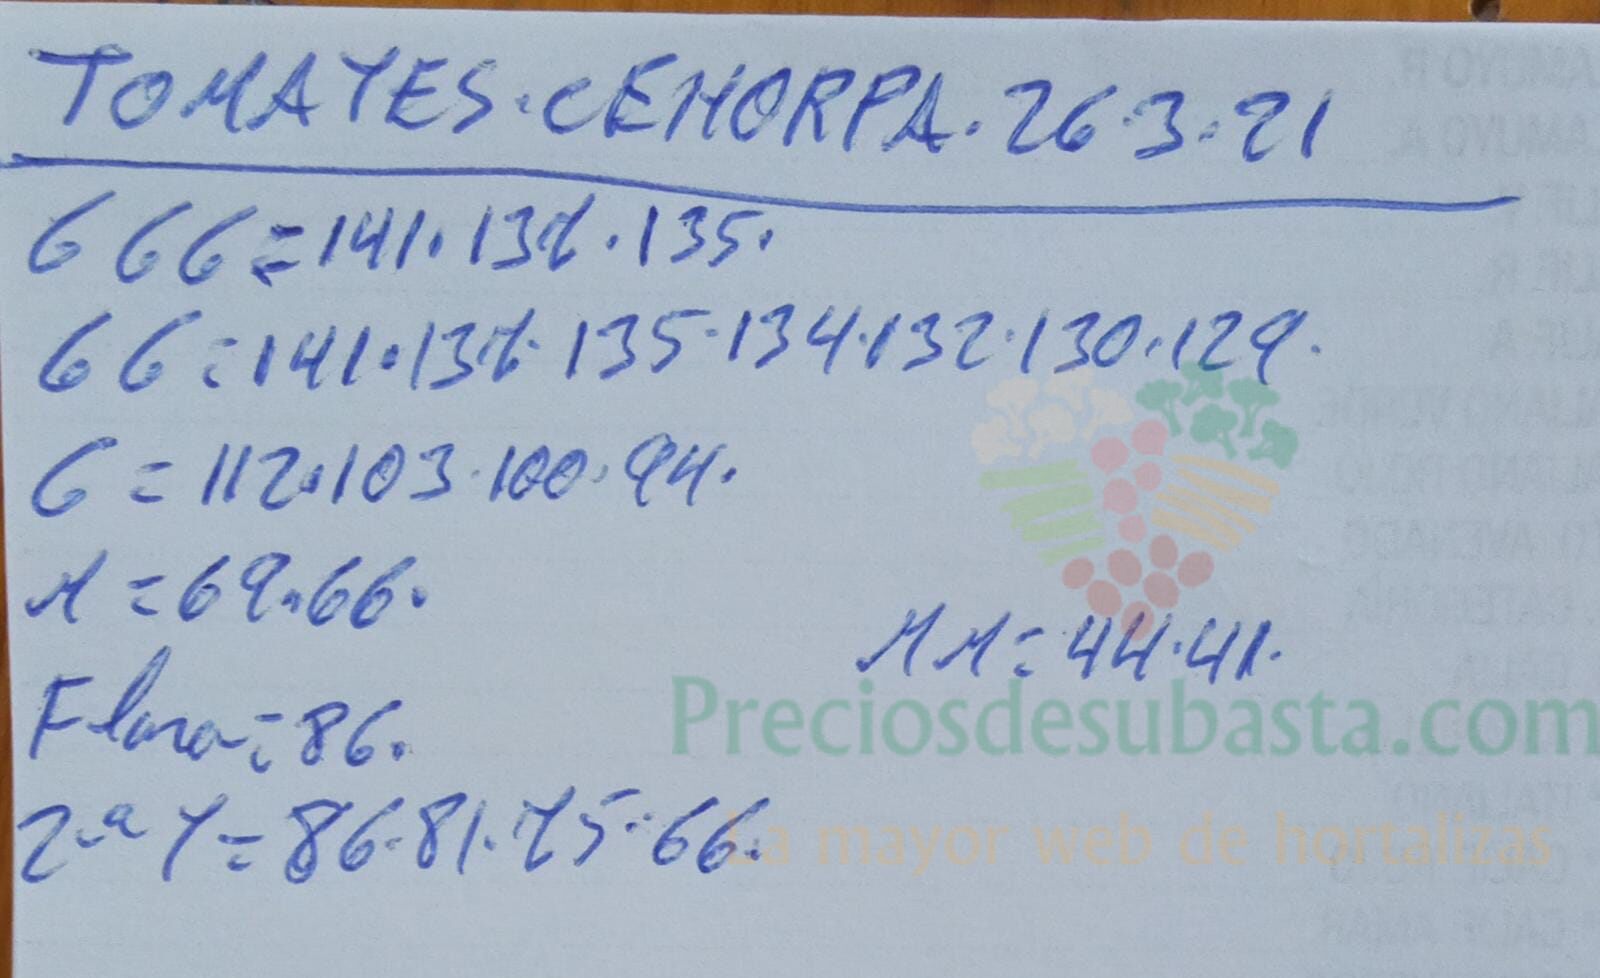 TOMATES·CEHORPA·26·3·21
GGG=141·137·135·
GG=141·137·135·134·132·130·129·
G=112·103·100·94·
M=69·66·
MM=44·41·
Preciosdesubasta.com
Flora=86·
2·ª T=86·81·75·66·
La mayor web de hortalizas